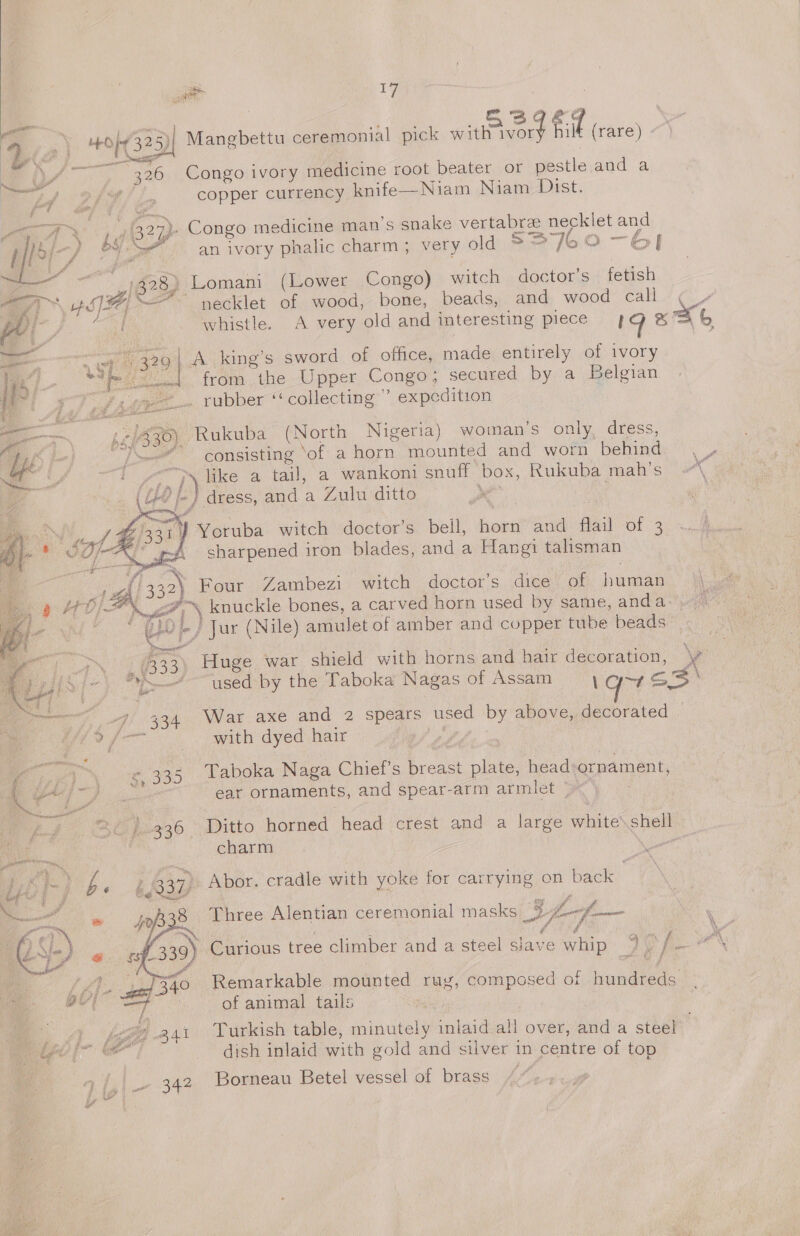 17
53989
40/- 325 Mangbettu ceremonial pick with ivory hilt (rare)
326 Congo ivory medicine root beater or pestle and a
copper currency knife—Niam Niam Dist.
327 Congo medicine man's snake vertabræ necklet and
an ivory phalic charm; very old 53760-61
328 Lomani (Lower Congo) witch doctor's fetish
necklet of wood, bone, beads, and wood call
whistle. A very old and interesting piece
329 A king's sword of office, made entirely of ivory
from the Upper Congo; secured by a Belgian
rubber “collecting” expedition
330 Rukuba (North Nigeria) woman's only dress,
consisting of a horn mounted and worn behind
like a tail, a wankoni snuff box, Rukuba mah's
dress, and a Zulu ditto
331 Yoruba witch doctor's bell, horn and flail of 3
sharpened iron blades, and a Hangi talisman
332 Four Zambezi witch doctor's dice of human
knuckle bones, a carved horn used by same, and a
Jur (Nile) amulet of amber and copper tube beads
333 Huge war shield with horns and hair decoration,
used by the Taboka Nagas of Assam
334 War axe and 2 spears used by above, decorated
with dyed hair
335 Taboka Naga Chief's breast plate, head-ornament,
ear ornaments, and spear-arm armlet
336 Ditto horned head crest and a large white shell
charm
337 Abor. cradle with yoke for carrying on back
338 Three Alentian ceremonial masks
339 Curious tree climber and a steel slave whip
340 Remarkable mounted rug, composed of hundreds
of animal tails
341 Turkish table, minutely inlaid all over, and a steel
dish inlaid with gold and silver in centre of top
342 Borneau Betel vessel of brass